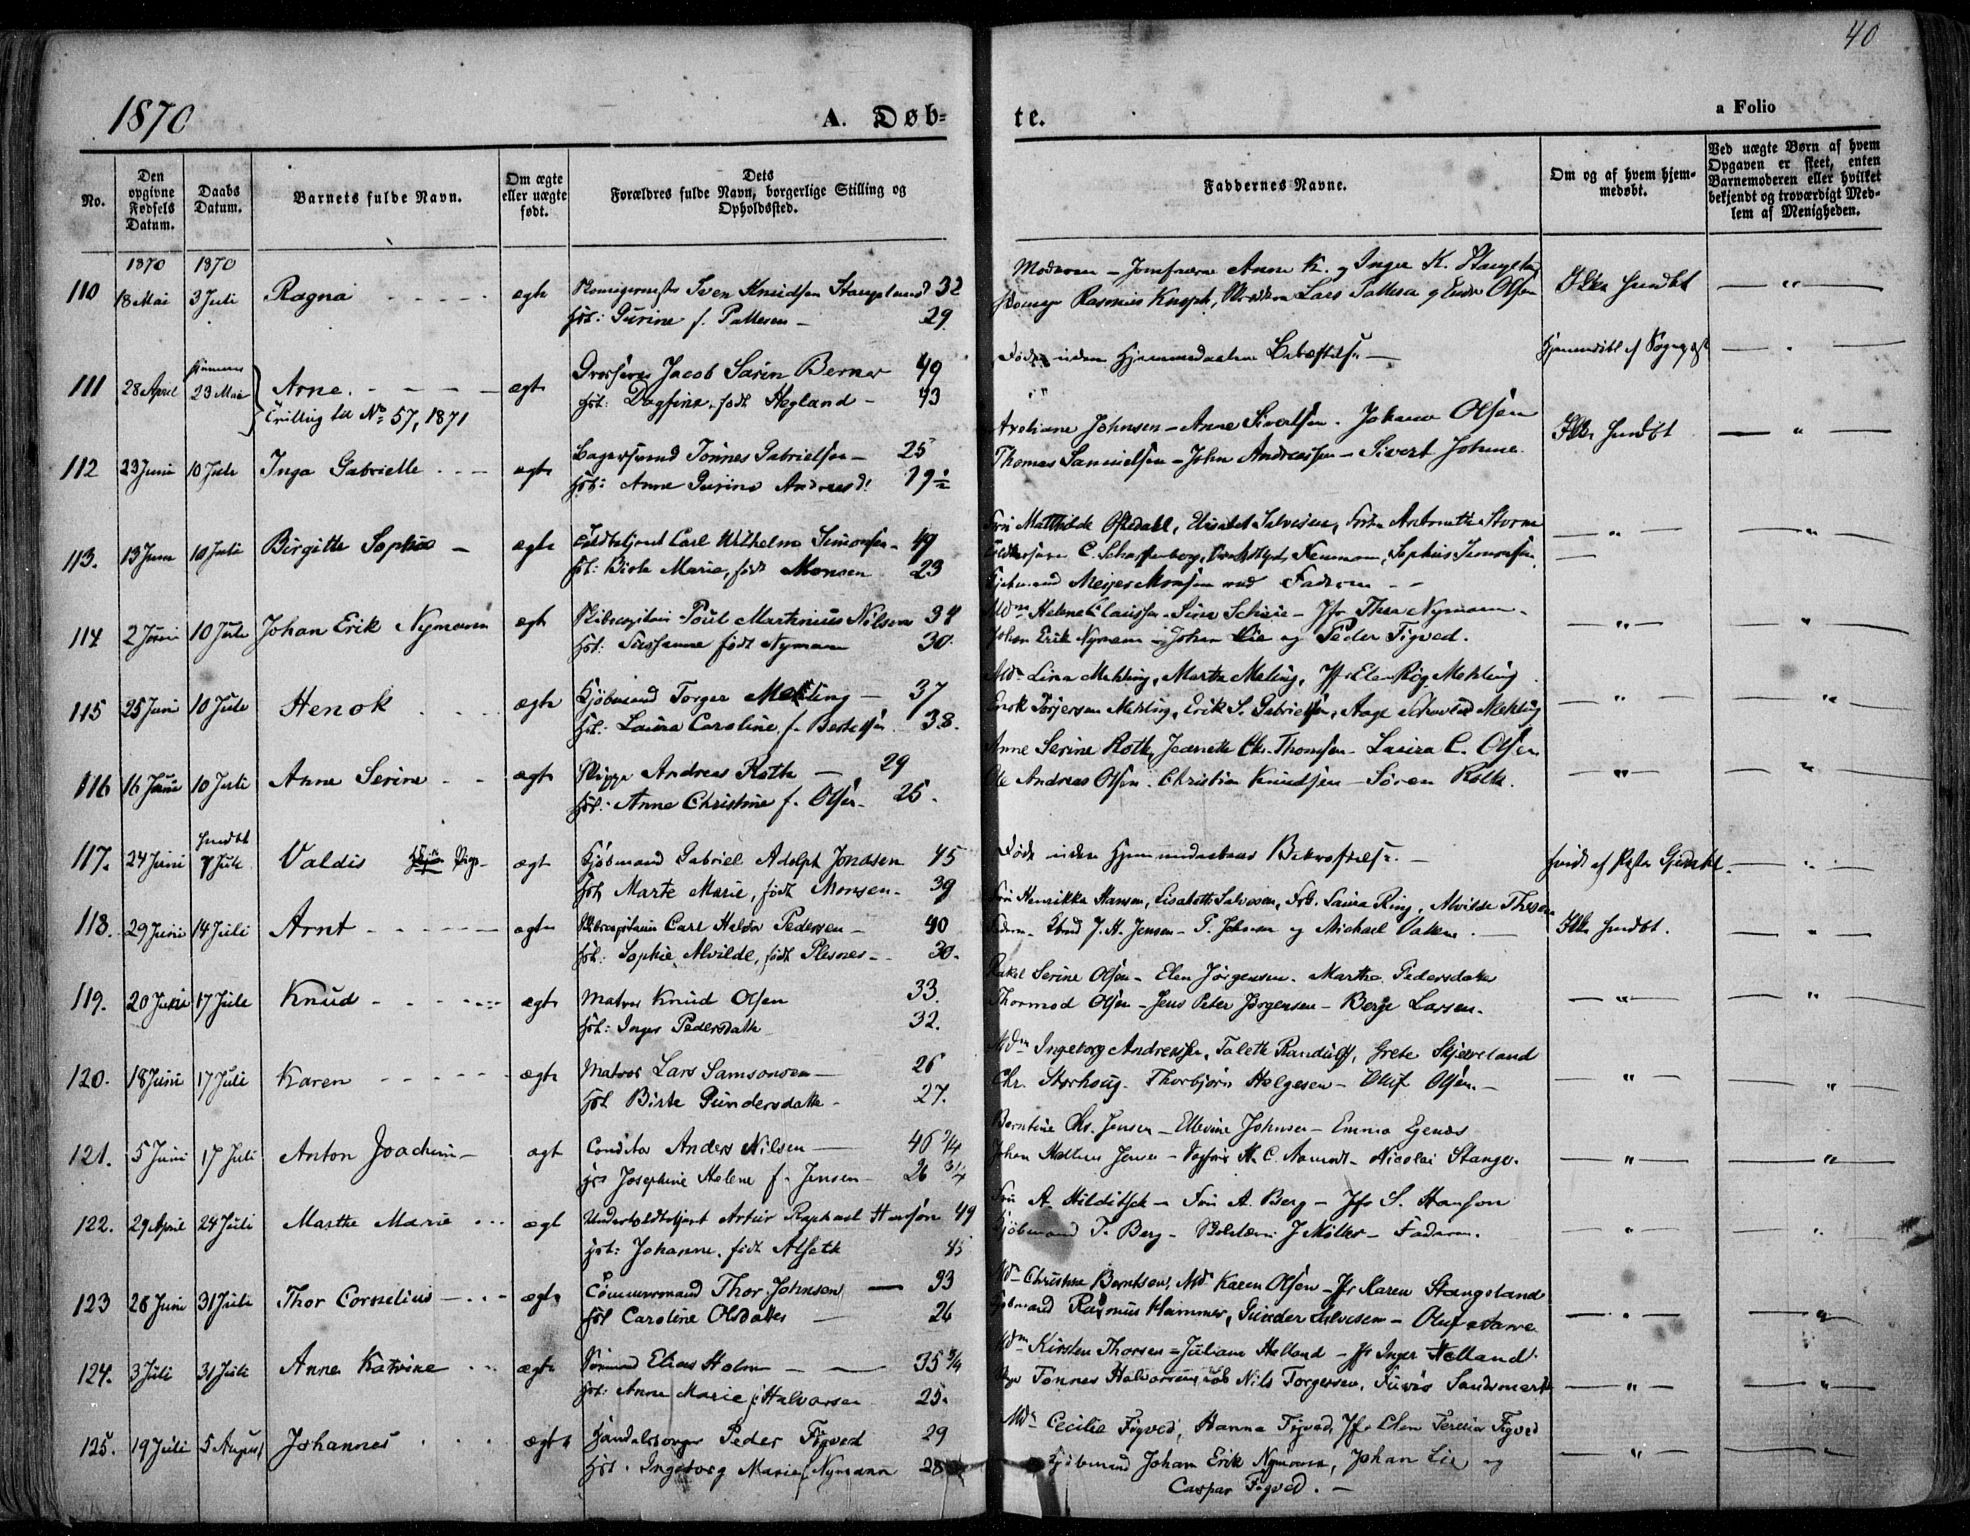 40
1870
A. Døb=
te.
a Folio
No.
Den opgivne Fødsels Datum.
Daabs Datum.
Barnets fulde Navn.
Om ægte eller uægte født.
Dets Forældres fulde Navn, borgerlige Stilling og Opholdssted.
Faddernes Navne.
Om og af hvem hjem-
medøbt.
Ved uægte Børn af hvem
Opgaven er skeet, enten
Barnemoderen eller hvilket
bekjendt og troværdigt Med-
lem af Menigheden.
1870 1870
110 18 Mai 3 Juli Ragna ægte Sven Knudsen Stangeland 32
Hst: Gurine f. Pallesen 29
Moderen - Jomfruerne Anne K. og Inger K. Stangeland
Rasmus Knoph, Lars Pallesen og Endre Olsen
Ikke hmdbt
111 28 April 23 Mai Arne. ægte Grosserer Jacob Sørin Berner 49
Tvilling til No. 57, 1871
Hst: Dagfine, født Hegland - 43
Født uden Hjemmedaabens Bekræftelse
Hjemmedøbt af Sognepræst
112 23 Juni 10 Juli Inga Gabrielle ægte Bagersvend Tønnes Gabrielsen - 25
Hst: Anne Gurine Andreasd. 19½
Axeliane Johnsen - Anne Sivertsen. Johanna Olsen
Thomas Samuelsen - John Andreassen - Sivert Johnne.
Ikke hmdbt
113. 13 Juni 10 Juli Birgitte Sophie ægte Toldbetjent Carl Wilhelm Simonsen - 49
Hst: Birte Marie, født Monsen 23
Fru Matthilde Oftedahl, Elisabet Salvesen, Antonette Storm
C. Scharffenberg, Neumann, Sophus Simonsen,
Meyer Monsen med Faderen
114 2 Juni 10 Juli Johan Erik Nymann ægte Skibscapitain Poul Martinius Nilsen 34
Hst: Susanne født Nymann 30.
Mdm Helene Claussen - Sina Scheie - Jfr Thea Nymann -
Johan Erik Nymann - Johan Lie og Peder Figved.
115 25 Juni 10 Juli Henok ægte Kjøbmand Torger Mehling - 37
Hst: Laura Caroline f. Bertelsen 38.
Mdm Lina Mehling, Marthe Meling, Jfr Elen Røg Mehling
Enok Torjersen Mehling, Erik S. Gabrielsen, Aage Mehling
116 16 Juni 10 Juli Anne Serine ægte Skipper Andreas Roth - 29
Hst: Anne Christine f. Olsen 25.
Anne Serine Roth, Jeanette Chr. Thomsen - Laura C. Olsen
Ole Andreas Olsen. Christian Knudsen - Søren Roth.
117. 24 Juni hmdbt 7 Juli Valdis Pige ægte Kjøbmand Gabriel Adolph Jonassen 45
Hst Marte Marie, født Monsen - 39
Født uden Hjemmedaabens Bekræftelse.
hmdt af Pastor
118. 29 Juni 14 Juli Arnt ægte Skibscapitain Carl Halvor Pedersen - 40
Hst: Sophie Alvilde, født Plesner - 30.
Fru Henrikke Hansen, Elisabeth Salvesen, Frk. Laura Ring, Alvilde Thesen
Faderen - J. H. Jensen - P. Johnsen og Michael Valeur.
Ikke hmdbt.
119. 20 Juni 17 Juli Knud ægte Matros Knud Olsen 33.
Hst: Inger Pedersdatter 32.
Rakel Serine Olsen - Elen Jørgensen. Martha Pedersdatter
Thormod Olsen - Jens Peter Jørgensen - Berge Larsen.
120. 18 Juni 17 Juli Karen ægte Matros Lars Samsonsen 26
Hst Birte Gundersdatter - 27.
Mdm Ingeborg Andreassen, Taleth Randulff, Grete Skjæveland
Chr. Storhoug - Thorbjørn Helgesen - Oluf Olsen.
121. 5 Juni 17 Juli Anton Joachim ægt Conditor Anders Nilsen 46 2/4
Hst Josephine Helene f. Jensen 26 3/4
Berntine Chr. Jensen - Ellevine Johnsen - Emma Egenæs
Johan Jensen - H. C. Aamodt - Nicolai Stange.
122. 29 April 24 Juli Marthe Marie ægt Undertoldbetjent Artur Raphael Hansøn 49
Hst: Johanne, født Alseth 45
Fru A. Hilditsch - Fru A. Berg - Jfr S. Hansøn
Kjøbmand T. Berg - J. Møller - Faderen.
123 26 Juni 31 Juli Thor Cornelius ægte Thor Johnsen 33
Hst Caroline Olsdatter 26
Mdm Christine Berntsen, Md Karen Olsen - Jfr Karen Stangeland
Kjøbmand Rasmus Hammer, Gunder Salvesen - Oluf Aanne
124. 3 Juli 31 Juli Anne Katrine ægte Elias Holm 35 3/4
Hst: Anne Marie f. Halvorsen 25.
Mdm Kirsten Thorsen - Juliane Helland - Jfr Inger Helland.
Tønnes Halvorsen, Nils Torgersen, Sandsmark
125. 19 Juli 5 August Johannes ægte Handelsborger Peder Figved 29
Hst. Ingeborg Marie f. Nymann 28
Mdm Cecilie Figved, Hanna Figved, Jfr Elen Figved
Kjøbmand Johan Erik Nymann, Johan Lie og
Caspar Figved. -